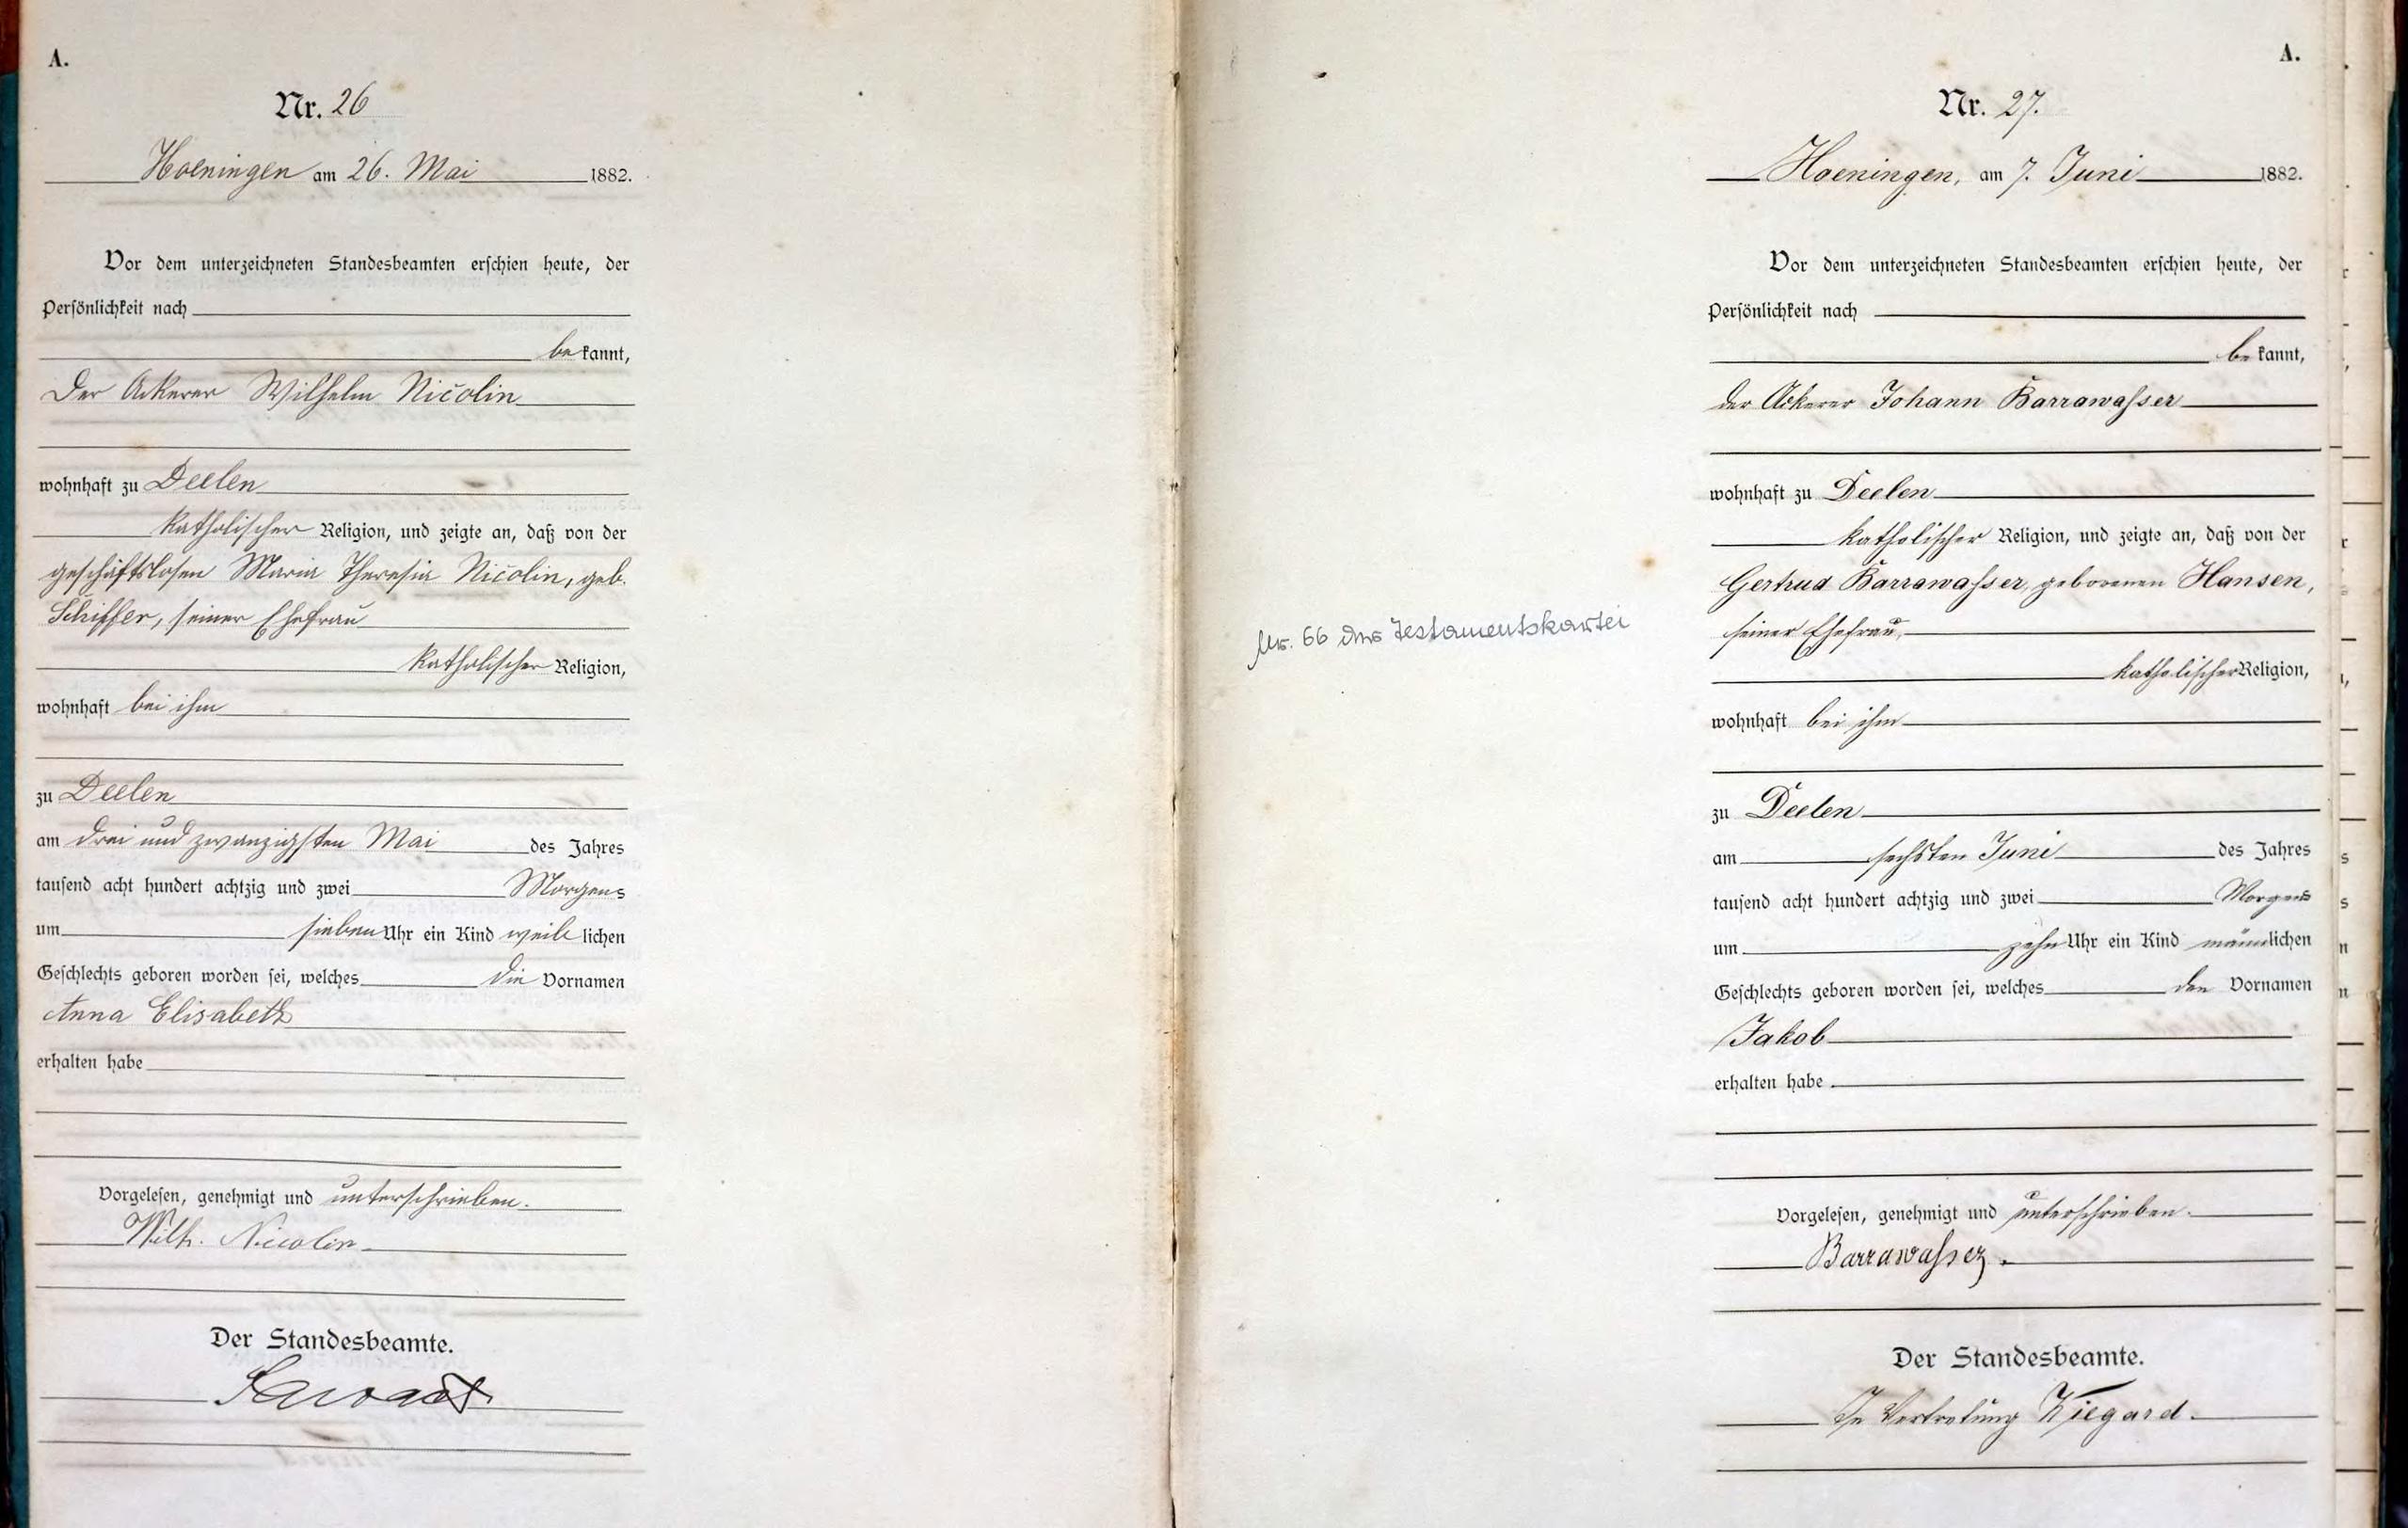 A.
Nr. 26
Hoeningen am 26. Mai 1882.
Vor dem unterzeichneten Standesbeamten erschien heute, der
Persönlichkeit nach
bekannt,
der Ackerer Wilhelm Nicolin
wohnhaft zu Deelen
katholischer Religion, und zeigte an, daß von der
geschäftslosen Maria Theresia Nicolin, geb.
Schiffer, seiner Ehefrau
katholischer Religion,
wohnhaft bei ihm
zu Deelen
am drei und zwanzigsten Mai des Jahres
tausend acht hundert achtzig und zwei Morgens
um sieben Uhr ein Kind weiblichen
Geschlechts geboren worden sei, welches die Vornamen
Anna Elisabeth
erhalten habe
Vorgelesen, genehmigt und unterschrieben.
Wilh. Nicolin
Der Standesbeamte.
Nr. 66 der Testamentskartei
A.
Nr. 27.
Hoeningen, am 7. Juni 1882.
Vor dem unterzeichneten Standesbeamten erschien heute, der
Persönlichkeit nach
bekannt,
der Ackerer Johann Barrawasser
wohnhaft zu Deelen
katholischer Religion, und zeigte an, daß von der
Gertrud Barrawasser, geborenen Hansen,
seiner Ehefrau,
katholischer Religion,
wohnhaft bei ihm
zu Deelen
am sechsten Juni des Jahres
tausend acht hundert achtzig und zwei Morgens
um zehn Uhr ein Kind männlichen
Geschlechts geboren worden sei, welches den Vornamen
Jakob
erhalten habe
Vorgelesen, genehmigt und unterschrieben.
Barrawasser.
Der Standesbeamte.
In Vertretung Wiegard.